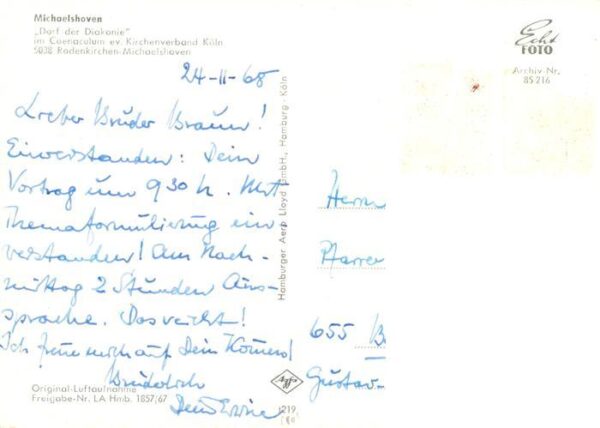 Michaelshoven
„Dorf der Diakonie"
im Coenaculum ev. Kirchenverband Köln
5038 Rodenkirchen-Michaelshoven
24-11-68
Lieber Bruder Braun!
Einverstanden: Dein
Vortrag um 9 30 h. Mit
Themaformulierung ein
verstanden! Am Nach-
mittag 2 Stunden Aus-
sprache. Das reicht!
Ich freue mich auf Dein Kommen!
Brüderlich
Dein Erwin
Original-Luftaufnahme
Freigabe-Nr. LA Hmb. 1857/67
Hamburger Aero Lloyd GmbH., Hamburg - Köln
Agfa
1219
Echt
FOTO
Archiv-Nr.
85 216
Herrn
Pfarrer
655 B
Gustav-